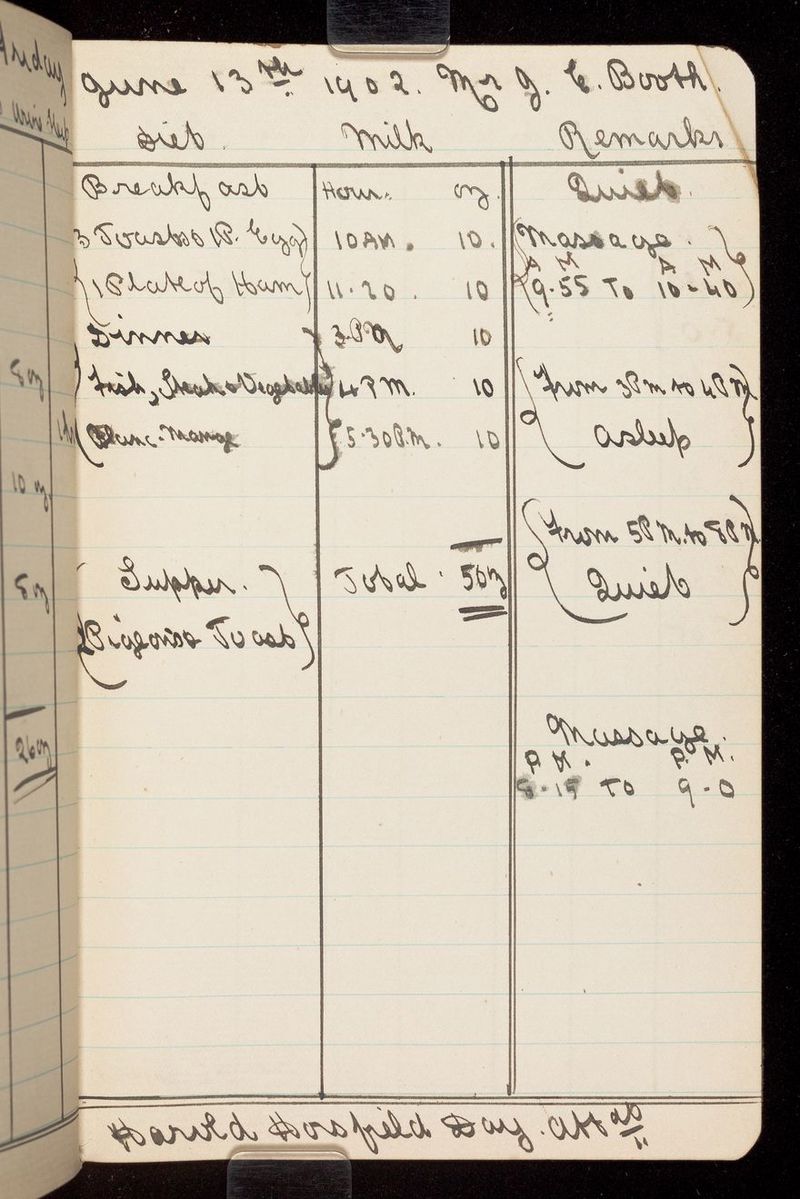 Friday
June 13th 1902. Mr J. E. Booth.
Diet. Milk Remarks
Breakfast Hour. oz. Quiet.
3 Toasts 1 P. Egg 10 AM. 10. Massage.
A M A M
1 Plate of Ham 11.20. 10 9.55 To 10-40
Dinner 3.PM 10
Fish, Steak & Vegetables 4 PM. 10 From 3Pm to 4PM
Blanc-Mange 5.30P.M. 10 asleep
From 5PM. to 8PM
Supper. Total. 50oz Quiet
Pigeons Toast
Massage.
P M. P. M.
8.15 To 9-0
Harold Horsfield Day. Att
8 oz
10 oz.
8 oz
26oz